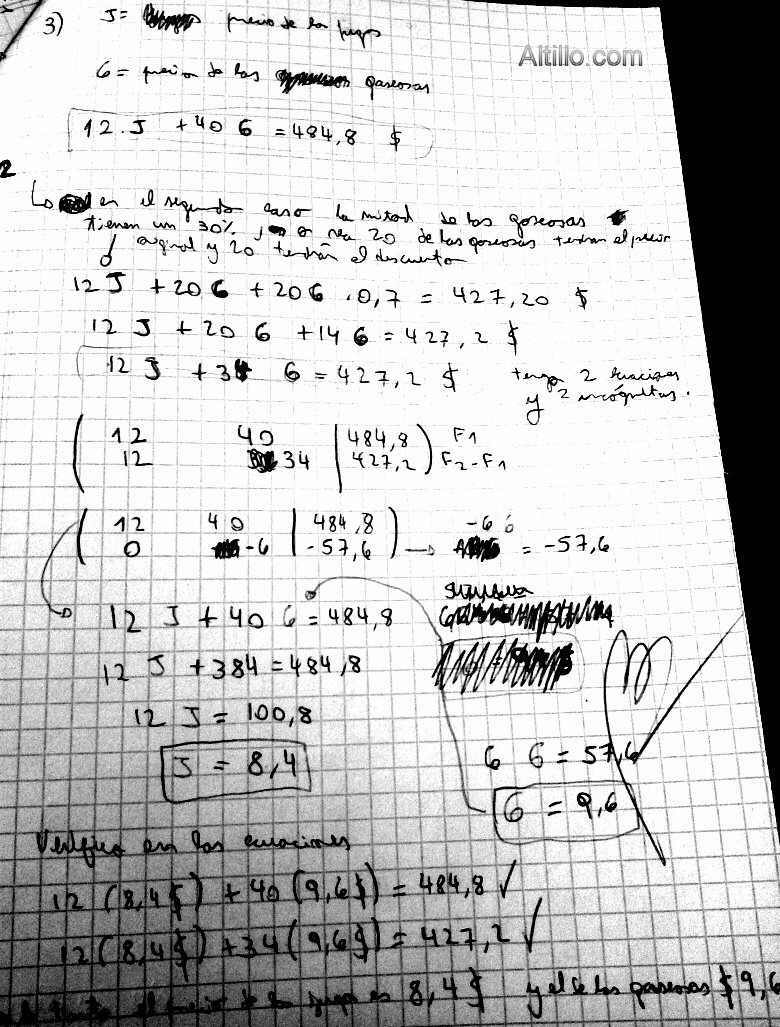 3) J = precio de los jugos
Altillo.com
G = precio de las gaseosas
12 . J + 40 G = 484,8 $
2
en el segundo caso la mitad de las gaseosas
tienen un 30% o sea 20 de las gaseosas tendran el precio
original y 20 tendrán el descuento
12 J + 20 G + 20 G . 0,7 = 427,20 $
12 J + 20 G + 14 G = 427,2 $
12 J + 34 G = 427,2 $ tengo 2 ecuaciones
y 2 incógnitas.
12 40 | 484,8 F1
12 34 | 427,2 F2 - F1
12 40 | 484,8
0 -6 | -57,6 → -6 G = -57,6
12 J + 40 G = 484,8
12 J + 384 = 484,8
12 J = 100,8
J = 8,4
6 G = 57,6
G = 9,6
Verifico en las ecuaciones
12 (8,4$) + 40 (9,6$) = 484,8 ✓
12 (8,4$) + 34 (9,6$) = 427,2 ✓
el precio de los jugos es 8,4 $ y el de las gaseosas $ 9,6